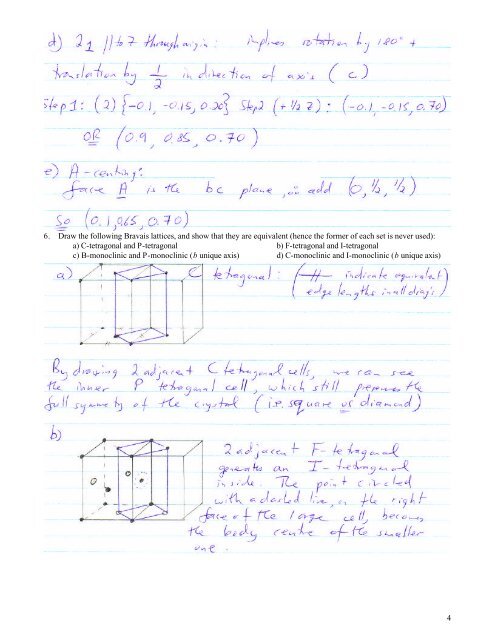 d) 2₁ // to z through origin: implies rotation by 180° +
translation by 1/2 in direction of axis (c)
Step 1: (2) {-0.1, -0.15, 0.20} Step 2 (+ ½ z): (-0.1, -0.15, 0.70)
OR (0.9, 0.85, 0.70)
e) A-centring:
face A is the bc plane, ∴ add (0, ½, ½)
So (0.1, 0.65, 0.70)
6. Draw the following Bravais lattices, and show that they are equivalent (hence the former of each set is never used):
a) C-tetragonal and P-tetragonal b) F-tetragonal and I-tetragonal
c) B-monoclinic and P-monoclinic (b unique axis) d) C-monoclinic and I-monoclinic (b unique axis)
a) C tetragonal: (—H— indicate equivalent
edge lengths in all diag's)
By drawing 2 adjacent C tetragonal cells, we can see
the inner P tetragonal cell, which still preserves the
full symmetry of the crystal (i.e. square vs diamond)
b)
2 adjacent F-tetragonal
generates an I-tetragonal
inside. The point circled
with a dashed line, on the right
face of the large cell, becomes
the body centre of the smaller
one.
4